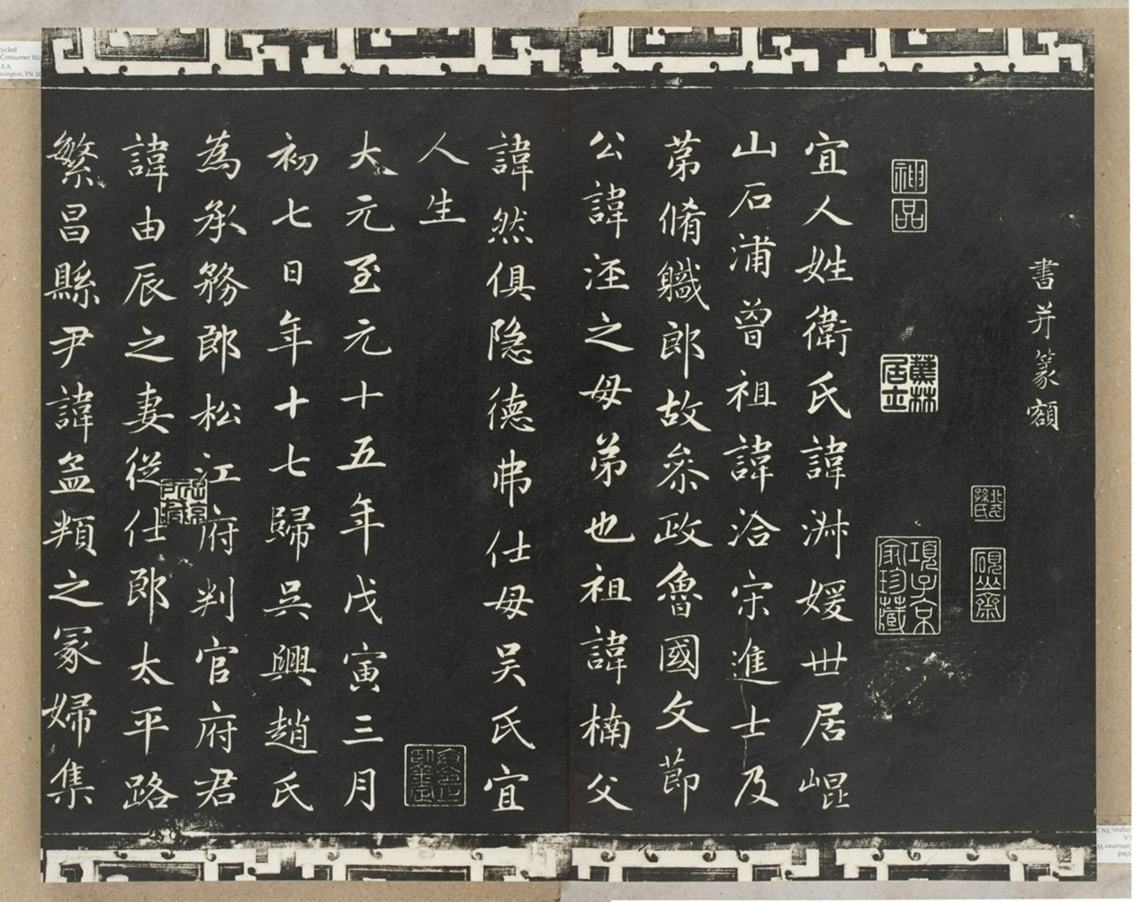 書并篆額
神品
叢林居士
項子京家珍藏
硯山齋
宜人姓衛氏諱淑媛世居崐
山石浦曾祖諱洽宋進士及
苐脩職郎故叅政魯國文節
公諱涇之母弟也祖諱楠父
諱然俱隐德弗仕母吴氏宜
人生
大元至元十五年戊寅三月
初七日年十七歸吴興趙氏
為承務郎松江府判官府君
諱由辰之妻從仕郎太平路
繁昌縣尹諱孟頖之冢婦集